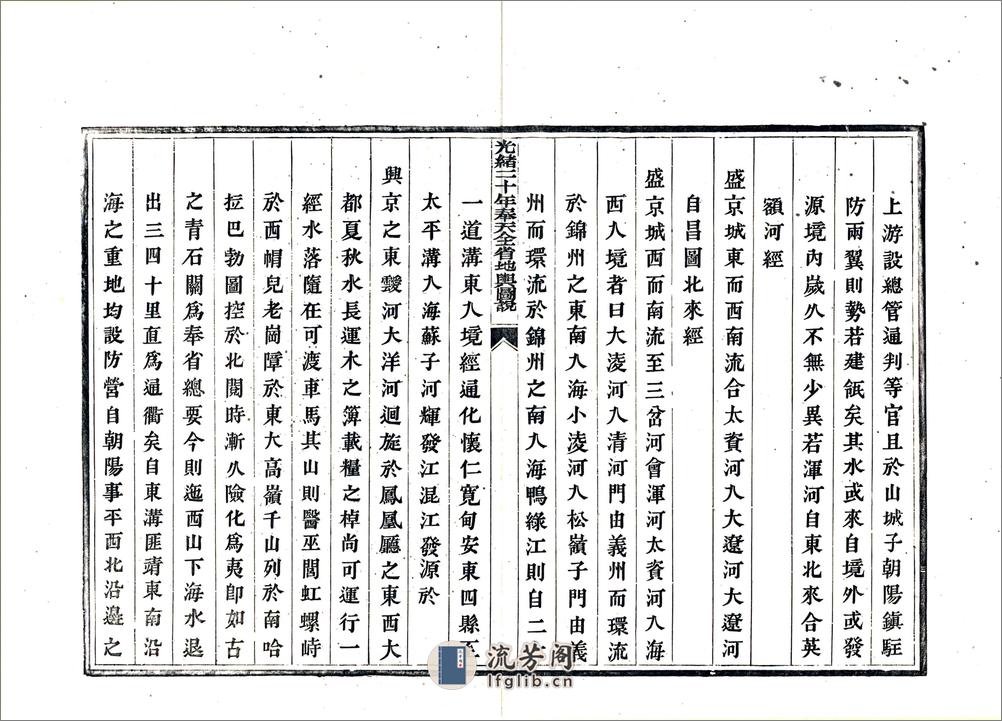 上游設總管通判等官且於山城子朝陽鎮駐
防兩翼則勢若建瓴矣其水或來自境外或發
源境內歲久不無少異若渾河自東北來合英
額河經
盛京城東而西南流合太資河入大遼河大遼河
自昌圖北來經
盛京城西而南流至三岔河會渾河太資河入海
西入境者曰大凌河入清河門由義州而環流
於錦州之東南入海小凌河入松嶺子門由義
州而環流於錦州之南入海鴨綠江則自二
光緒二十年奉天全省地輿圖說
一道溝東入境經通化懷仁寬甸安東四縣至
太平溝入海蘇子河輝發江混江發源於
興京之東靉河大洋河迴旋於鳳凰廳之東西大
都夏秋水長運木之簰載糧之棹尚可運行一
經水落隨在可渡車馬其山則醫巫閭虹螺峙
於西帽兒老崗障於東大高嶺千山列於南哈
拉巴勃圖控於北閱時漸久險化為夷卽如古
之青石關爲奉省總要今則迤西山下海水退
出三四十里直爲通衢矣自東溝匪靖東南沿
海之重地均設防營自朝陽事平西北沿邊之
流芳阁
lfglib.cn